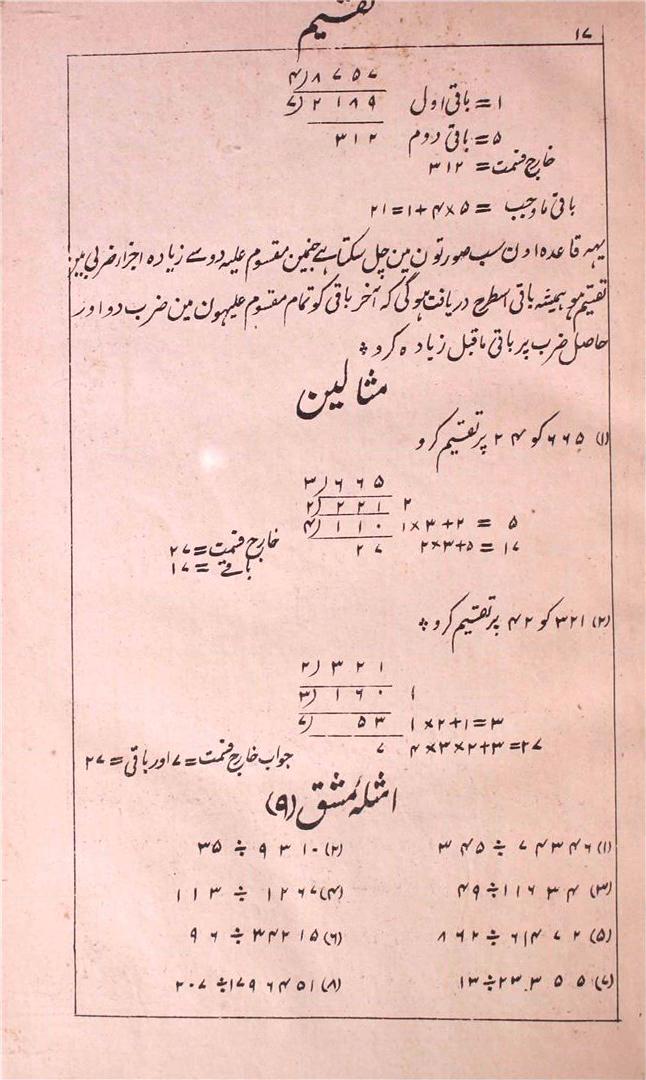 تقسیم
۱۷
۴)۸ ۷ ۵ ۷
۷)۲ ۱ ۸ ۹ ۱ = باقی اول
۳ ۱ ۲ ۵ = باقی دوم
خارج قسمت = ۳۱۲
باقی ماوجب = ۵×۴+۱=۲۱
یہہ قاعدہ اون سب صورتون مین چل سکتا ہے جنمین مقسوم علیہ دو سے زیادہ اجزار ضربی مین
تقسیم ہو ہمیشہ باقی اسطرح دریافت ہوگی کہ آخر باقی کو تمام مقسوم علیہون مین ضرب دو اور
حاصل ضرب پر باقی ماقبل زیادہ کرو ؞
مثالین
(۱) ۶۶۵ کو ۲۴ پر تقسیم کرو
۳)۶ ۶ ۵
۲)۲ ۲ ۱ ۲
۴)۱ ۱ ۰ ۱×۳+۲ = ۵
۲ ۷ ۲×۳+۵ = ۱۷
خارج قسمت = ۲۷
باقے = ۱۷
(۲) ۳۲۱ کو ۴۲ پر تقسیم کرو ؞
۲)۳ ۲ ۱
۳)۱ ۶ ۰ ۱
۷) ۵۳ ۱×۲+۱=۳
۷ ۴×۳×۲+۳=۲۷
جواب خارج قسمت = ۷ اور باقی = ۲۷
امثلہ مشق (۹)
(۱) ۷۴۳۴۶ ÷ ۳۴۵ (۲) ۹۳۱۰ ÷ ۳۵
(۳) ۱۱۶۳۴ ÷ ۴۹ (۴) ۱۲۶۷ ÷ ۱۱۳
(۵) ۶۱۴۷۲ ÷ ۸۶۲ (۶) ۳۴۲۱۵ ÷ ۹۶
(۷) ۲۳۰۳۵۵ ÷ ۱۳ (۸) ۱۷۹۶۴۵۱ ÷ ۲۰۷